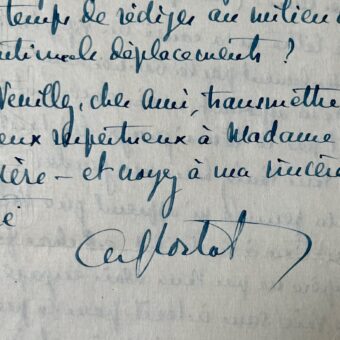 temps de rédiger au milieu d
déplacements ?
Veuillez, cher ami, transmettre
respectueux à Madame
et croyez à ma sincère